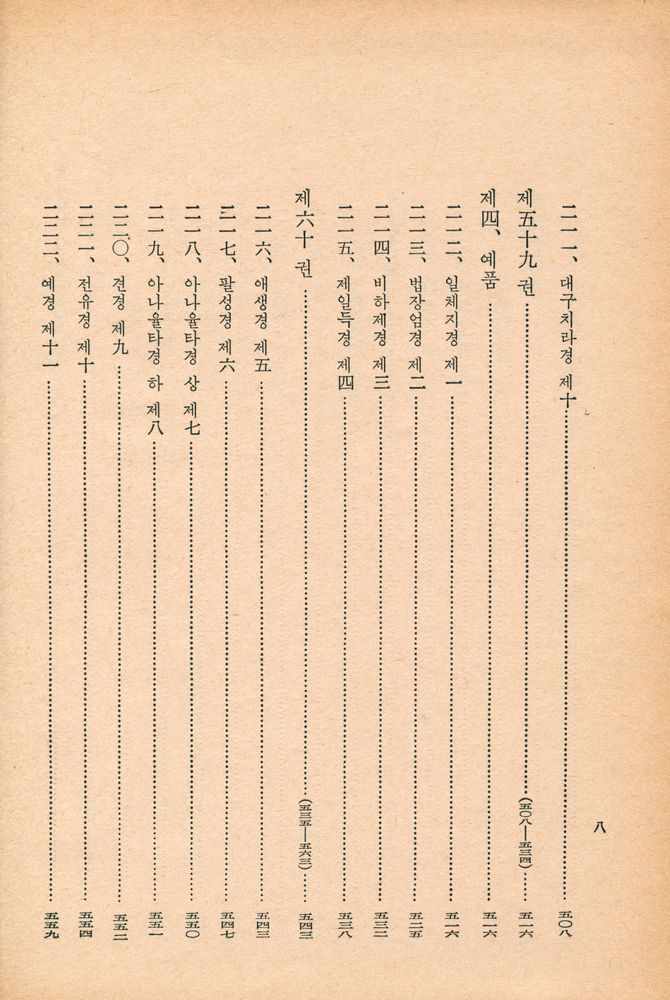 八
二一一、대구치라경 제十 五〇八
제五十九권 (五〇八—五三四) 五一六
제四、예품 五一六
二一二、일체지경 제一 五一六
二一三、법장엄경 제二 五二五
二一四、비하제경 제三 五三二
二一五、제일득경 제四 五三八
제六十권 (五三五—五六三) 五四三
二一六、애생경 제五 五四三
二一七、팔성경 제六 五四七
二一八、아나율타경 상 제七 五五〇
二一九、아나율타경 하 제八 五五一
二二〇、견경 제九 五五二
二二一、전유경 제十 五五四
二二二、예경 제十一 五五九